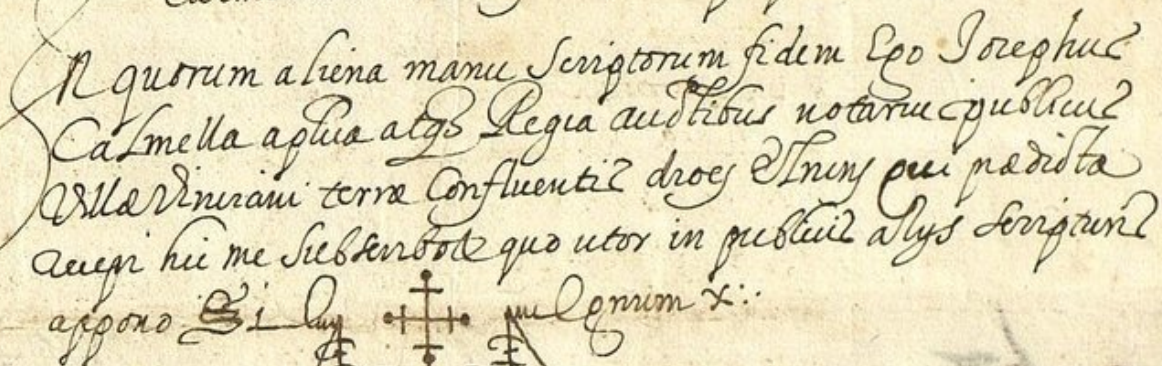 In quorum aliena manu scriptorum fidem Ego Josephus
Calmella aplica atqȝ Regia auctibus notarius publicus
Villæ Vinciani terræ Confluentis dioes Elnens qui prædicta
recepi hic me subscribo & quo utor in publicis alijs scripturis
appono Sig num x